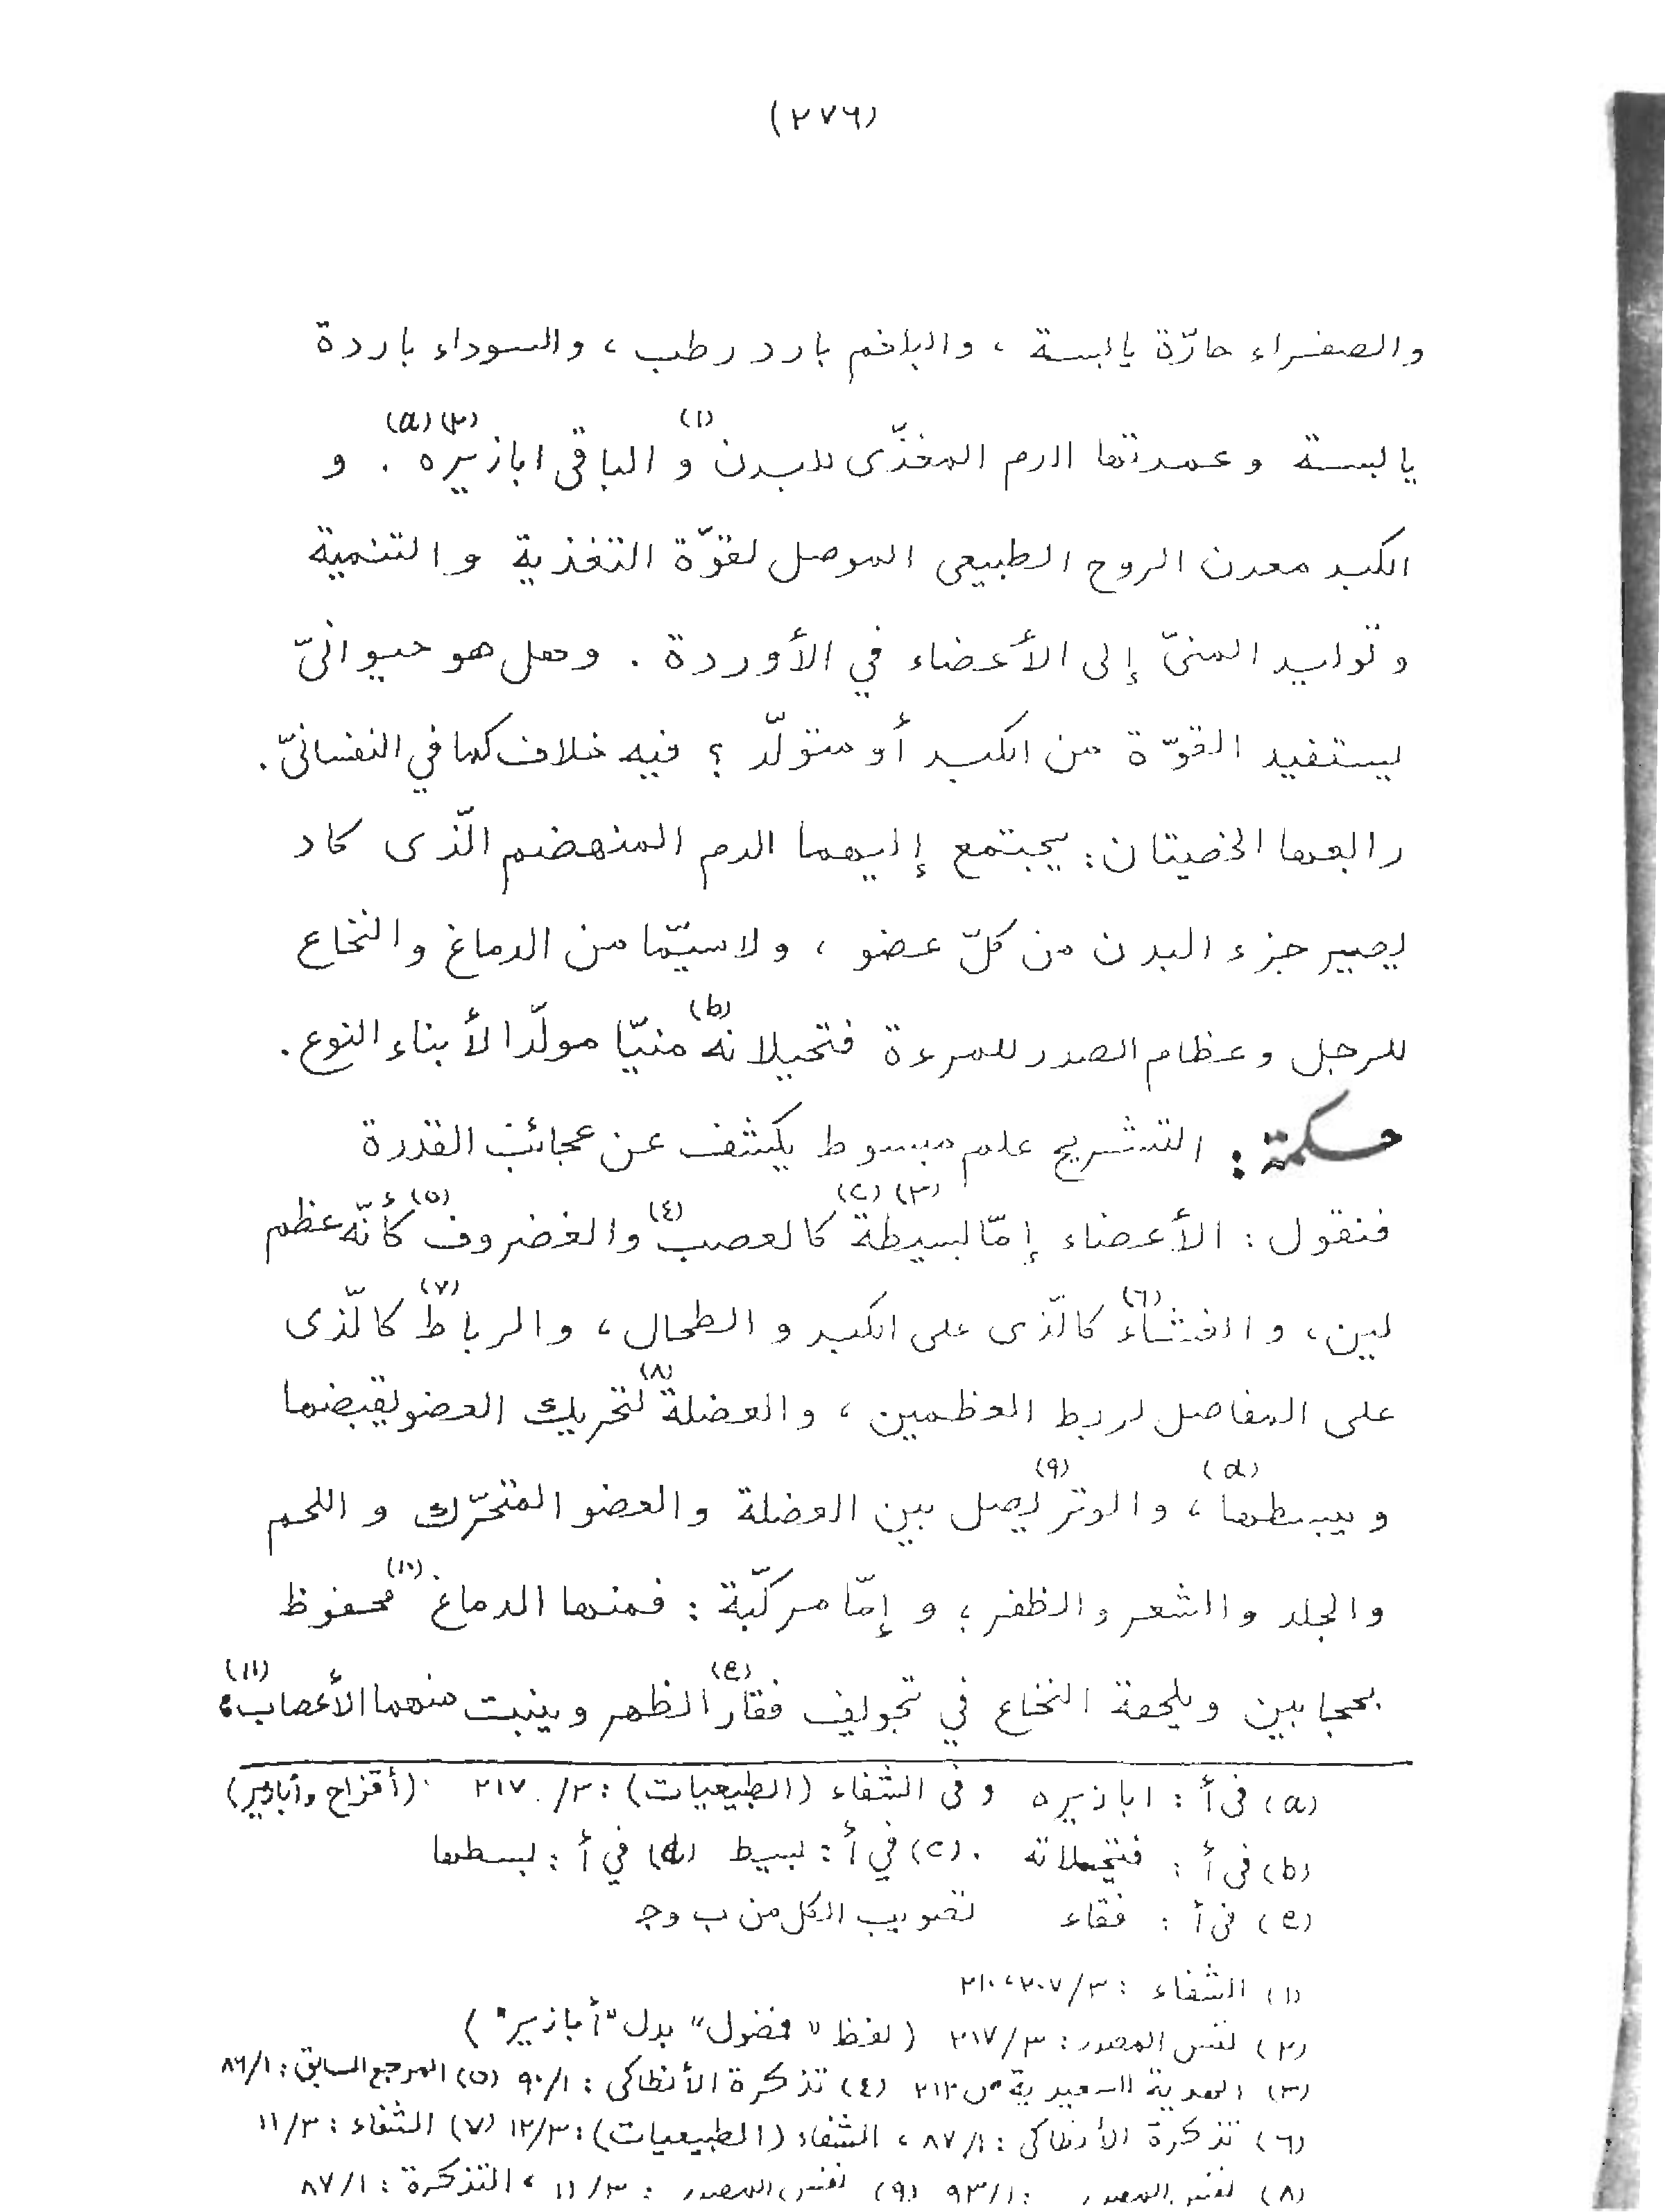 (٢٧٦)
والصفراء حارّة يابسة ، والبلغم بارد رطب ، والسوداء باردة
يابسة وعمدتها الدم المغذّى للبدن(١) و الباقى ابازيره(٢)(a) . و
الكبد معدن الروح الطبيعى الموصل لقوّة التغذية والتنمية
وتوليد المنىّ إلى الأعضاء في الأوردة . وهل هو حيوانىّ
يستفيد القوّة من الكبد أو متولّد ؟ فيه خلاف كما في النفسانىّ .
رابعها الخصيتان : يجتمع إليهما الدم المنهضم الّذى كاد
يصير جزء البدن من كلّ عضو ، ولاسيّما من الدماغ والنخاع
للرجل وعظام الصدر للمرءة فتحيلانه(b) منيّا مولّدا لأبناء النوع .
حكمة : التشريح علم مبسوط يكشف عن عجائب القدرة
فنقول : الأعضاء إمّا بسيطة(٣)(c) كالعصب(٤) والغضروف(٥) كأنّه عظم
لين ، والغشاء(٦) كالّذى على الكبد و الطحال ، والرباط(٧) كالّذى
على المفاصل لربط العظمين ، والعضلة(٨) لتحريك العضو يقبضها
ويبسطها(d) ، والوتر(٩) يصل بين العضلة والعضو المتحرّك و اللحم
والجلد والشعر والظفر ؛ و إمّا مركّبة : فمنها الدماغ(١٠) محفوظ
بحجابين ويلحقة النخاع في تجويف فقار(e) الظهر وينبت منهما الأعصاب(١١) ؛
(a) فى أ : ابازيره وفى الشفاء (الطبيعيات) : ٣/٢١٧ . (أقزاح وأبازير)
(b) فى أ : فتحيلاته . (c) في أ : بسيط (d) في أ : بسطها
(e) فى أ : فقاء تصويب الكل من ب وج
(١) الشفاء : ٣/٢٠٧ ، ٢١٠
(٢) نفس المصدر : ٣/٢١٧ (لفظ " فضول " بدل "أبازير")
(٣) الهدية السعيدية ص ٢١٣ (٤) تذكرة الأنطاكى : ١/٩٠ (٥) المرجع السابق : ١/٨٦
(٦) تذكرة الأنطاكى : ١/٨٧ ، الشفاء (الطبيعيات) : ٣/١٢ (٧) الشفاء : ٣/١١
(٨) نفس المصدر : ١/٩٣ (٩) نفس المصدر : ٣/١١ ، التذكرة : ١/٨٧